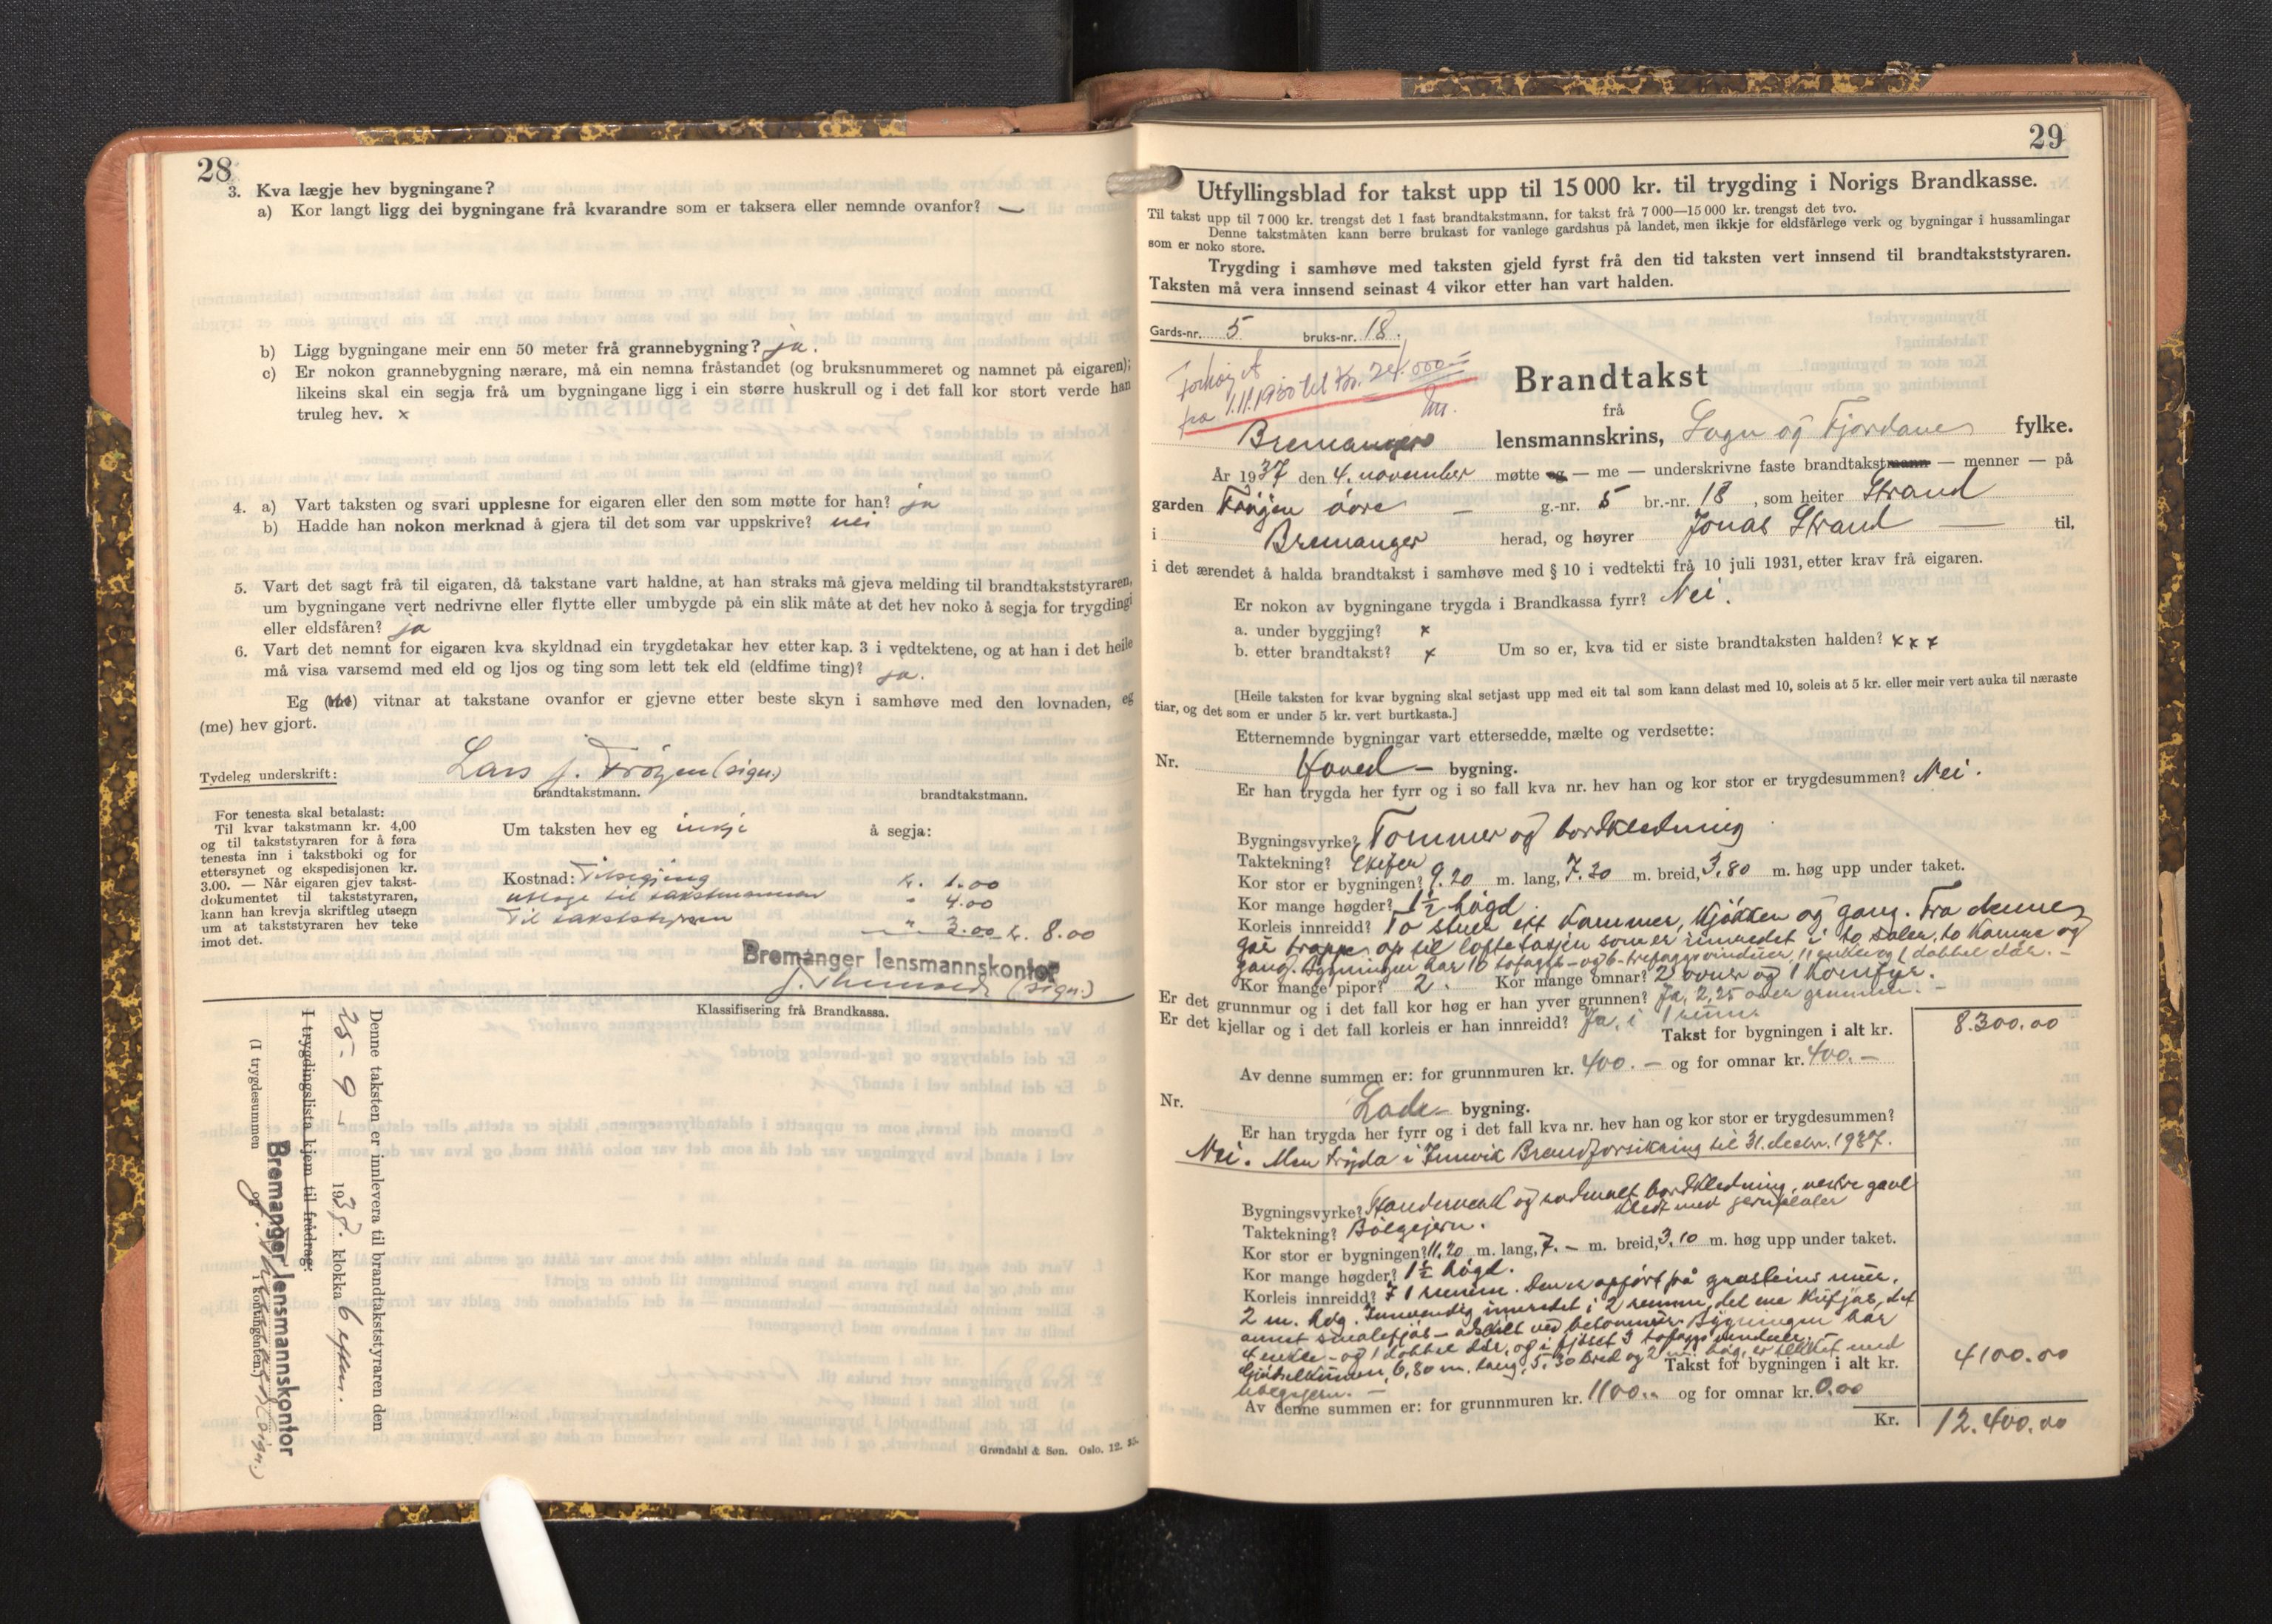 28
3. Kva lægje hev bygningane?
a) Kor langt ligg dei bygningane frå kvarandre som er taksera eller nemnde ovanfor? —
b) Ligg bygningane meir enn 50 meter frå grannebygning? ja.
c) Er nokon grannebygning nærare, må ein nemna fråstandet (og bruksnummeret og namnet på eigaren);
likeins skal ein segja frå um bygningane ligg i ein større huskrull og i det fall kor stort verde han
truleg hev. x
4. a) Vart taksten og svari upplesne for eigaren eller den som møtte for han? ja
b) Hadde han nokon merknad å gjera til det som var uppskrive? nei
5. Vart det sagt frå til eigaren, då takstane vart haldne, at han straks må gjeva melding til brandtakststyraren,
um bygningane vert nedrivne eller flytte eller umbygde på ein slik måte at det hev noko å segja for trygdingi
eller eldsfåren? ja
6. Vart det nemnt for eigaren kva skyldnad ein trygdetakar hev etter kap. 3 i vedtektene, og at han i det heile
må visa varsemd med eld og ljos og ting som lett tek eld (eldfime ting)? ja.
Eg (me) vitnar at takstane ovanfor er gjevne etter beste skyn i samhøve med den lovnaden, eg
(me) hev gjort.
Tydeleg underskrift: Lars J. Frøyen (sign.)
brandtakstmann. brandtakstmann.
For tenesta skal betalast:
Til kvar takstmann kr. 4,00
og til takststyraren for å føra
tenesta inn i takstboki og for
ettersynet og ekspedisjonen kr.
3.00. — Når eigaren gjev takst-
dokumentet til takststyraren,
kann han krevja skriftleg utsegn
um at takststyraren hev teke
imot det.
Um taksten hev eg inkje å segja:
Kostnad: Tilsigjing kr. 1.00
utlegg til takstmannen " 4.00
Til takststyraren " 3.00 kr. 8.00
Bremanger lensmannskontor
(sign.)
Klassifisering frå Brandkassa.
Denne taksten er innlevera til brandtakststyraren den
25 - 9 - 1937. klokka 6 eftm.
I trygdingslista kjem til frådrag:
(I trygdesummen og i kontingenten.)
Bremanger lensmannskontor
(sign.)
Grøndahl & Søn. Oslo. 12. 35.
29
Utfyllingsblad for takst upp til 15 000 kr. til trygding i Norigs Brandkasse.
Til takst upp til 7 000 kr. trengst det 1 fast brandtakstmann, for takst frå 7 000—15 000 kr. trengst det tvo.
Denne takstmåten kann berre brukast for vanlege gardshus på landet, men ikkje for eldsfårlege verk og bygningar i hussamlingar
som er noko store.
Trygding i samhøve med taksten gjeld fyrst frå den tid taksten vert innsend til brandtakststyraren.
Taksten må vera innsend seinast 4 vikor etter han vart halden.
Gards-nr. 5 bruks-nr. 18.
Forhøyet
fra 1.11.1950 til kr. 24.000.=
Brandtakst
frå
Bremanger lensmannskrins, Sogn og Fjordane fylke.
År 1937 den 4. november møtte eg — me — underskrivne faste brandtakstmann — menner — på
garden Frøyen øvre — g.-nr. 5 br.-nr. 18, som heiter Strand
i Bremanger herad, og høyrer Jonas Strand — til,
i det ærendet å halda brandtakst i samhøve med § 10 i vedtekti frå 10 juli 1931, etter krav frå eigaren.
Er nokon av bygningane trygda i Brandkassa fyrr? Nei.
a. under byggjing? x
b. etter brandtakst? x Um so er, kva tid er siste brandtaksten halden? x x x
[Heile taksten for kvar bygning skal setjast upp med eit tal som kann delast med 10, soleis at 5 kr. eller meir vert auka til næraste
tiar, og det som er under 5 kr. vert burtkasta.]
Etternemnde bygningar vart ettersedde, mælte og verdsette:
Nr. Hoved- bygning.
Er han trygda her fyrr og i so fall kva nr. hev han og kor stor er trygdesummen? Nei.
Bygningsvyrke? Tømmer og bordkledning
Taktekning? Skifer
Kor stor er bygningen? 9.20 m. lang, 7.30 m. breid, 3.80 m. høg upp under taket.
Kor mange høgder? 1½ høgd.
Korleis innreidd? To stuer ett kammer, kjøkken og gang. Fra denne
går trappe op til loftetasjen som er innredet i to saler, to kamre og
gang. Bygningen har 10 tofags- og 6 trefagsvinduer, 11 enkle og 1 dobbel dør. —
Kor mange pipor? 2. Kor mange omnar? 2 ovner og 1 komfyr.
Er det grunnmur og i det fall kor høg er han yver grunnen? Ja, 2,25 over grunnen. —
Er det kjellar og i det fall korleis er han innreidd? Ja, i 1 rum.
Takst for bygningen i alt kr. 8.300.00
Av denne summen er: for grunnmuren kr. 400.— og for omnar kr. 400.—
Nr. Lade- bygning.
Er han trygda her fyrr og i det fall kva nr. hev han og kor stor er trygdesummen?
Nei. Men trygda i Innvik Brandforsikring til 31. decbr. 1937.
Bygningsvyrke? Standerverk og rødmalt bordkledning, vestre gavl
kledt med jernplater
Taktekning? Bølgejern.
Kor stor er bygningen? 11.20 m. lang, 7.— m. breid, 3.10 m. høg upp under taket.
Kor mange høgder? 1½ høgd.
Korleis innreidd? I 1 rum. Den er opført på gråsteins mur,
2 m. høg. Innvendig innredet i 2 rum, det ene kufjøs, det
annet smalefjøs — adskilt ved betonmur. Bygningen har
4 enkle- og 1 dobbel dør, og i fjøset 3 tofags vinduer. —
Gjødselkummen, 6,80 m. lang, 5,30 bred og 2 m. høg, er tekket med
bølgejern. —
Takst for bygningen i alt kr. 4100.00
Av denne summen er: for grunnmuren kr. 1100.— og for omnar kr. 0.00
Kr. 12.400.00